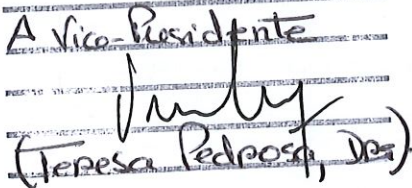 A Vice-Presidente
(Teresa Pedrosa, Dra)